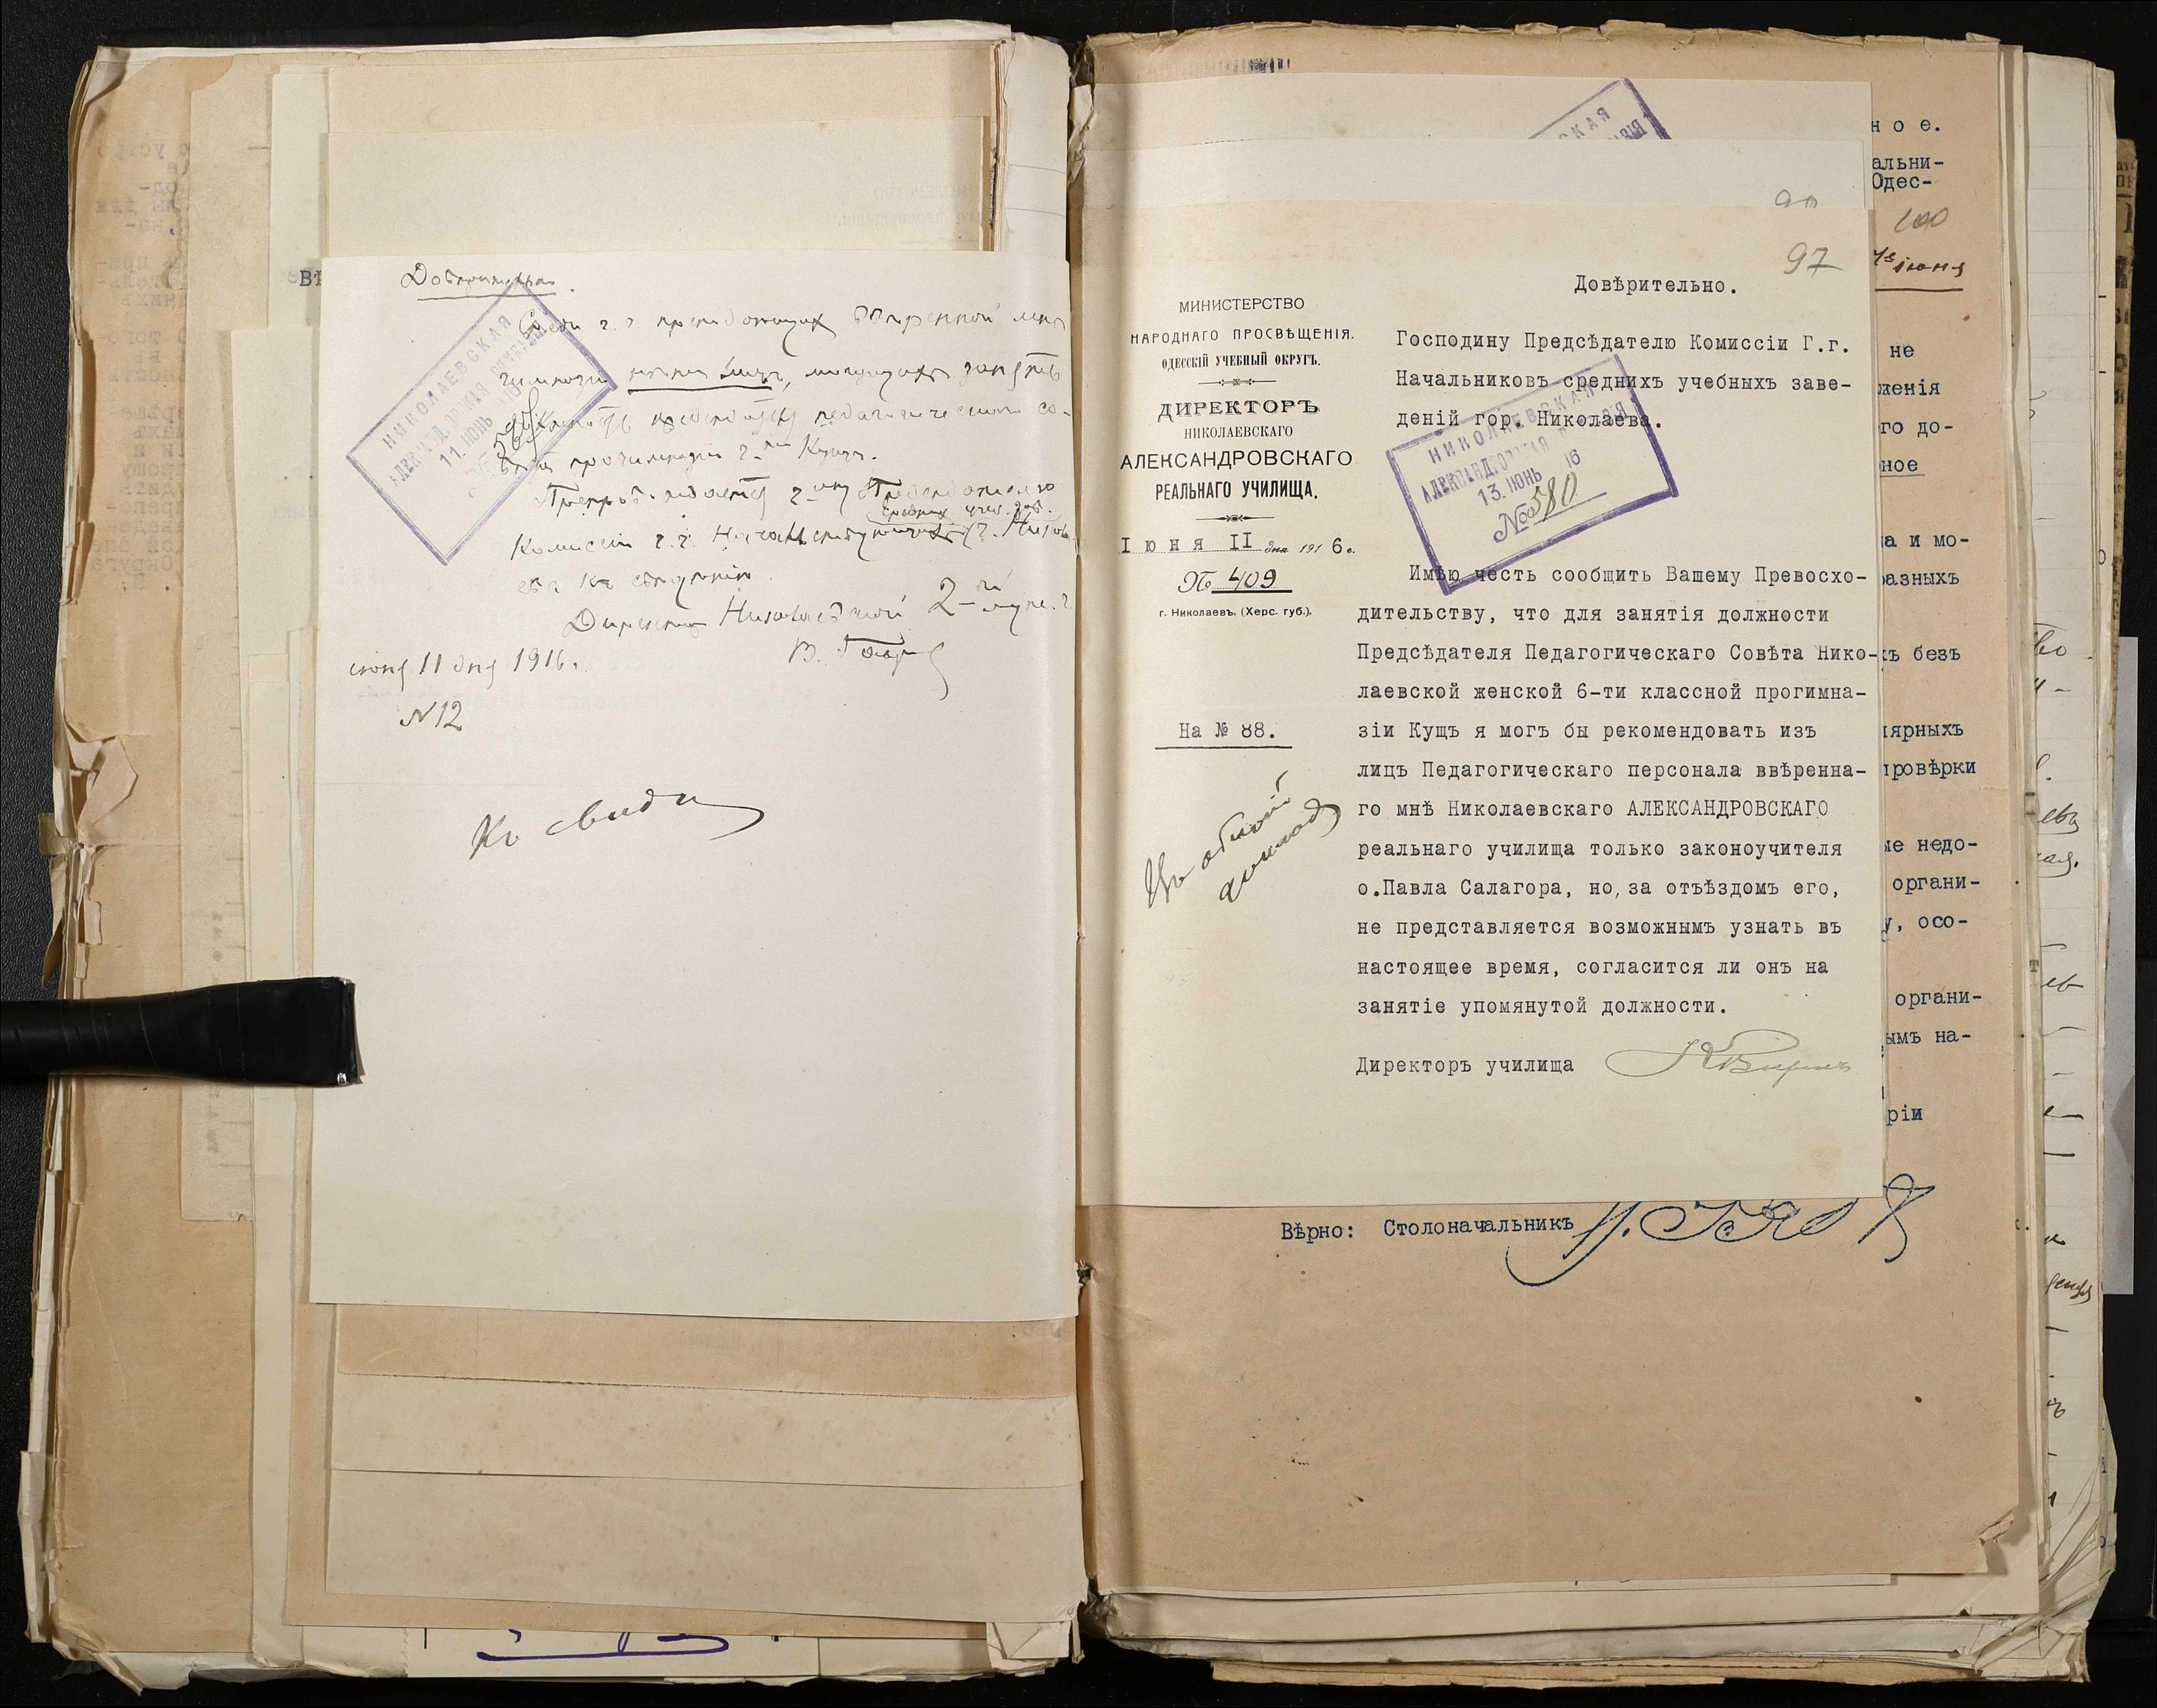 Довѣрительно.
Среди г.г. преподающихъ ввѣренной мнѣ
гимназіи нѣтъ лицъ, могущихъ занять
должность предсѣдателя педагогическаго со-
вѣта прогимназіи г-жи Кущъ.
Предсѣдателю
среднихъ учеб. зав.
Комиссіи г.г. Начальниковъ г. Никола
ева къ свѣдѣнію.
Директоръ Николаевской 2-й муж. г.
іюня 11 дня 1916.
N 12
Къ свѣд
НИКОЛАЕВСКАЯ
АЛЕКСАНДРОВСКАЯ ГИМНАЗІЯ
11. ІЮНЬ 16
97
Довѣрительно.
МИНИСТЕРСТВО
НАРОДНАГО ПРОСВѢЩЕНІЯ.
ОДЕССКІЙ УЧЕБНЫЙ ОКРУГЪ.
ДИРЕКТОРЪ
НИКОЛАЕВСКАГО
АЛЕКСАНДРОВСКАГО
РЕАЛЬНАГО УЧИЛИЩА.
Іюня II дня 1916 г.
№ 409
г. Николаевъ, (Херс. губ.).
На № 88.
Къ общему
докладу
Господину Предсѣдателю Комиссіи Г.г.
Начальниковъ среднихъ учебныхъ заве-
деній гор. Николаева.
НИКОЛАЕВСКАЯ
АЛЕКСАНДРОВСКАЯ ГИМНАЗІЯ
13. ІЮНЬ 16
№ 580
Имѣю честь сообщить Вашему Превосхо-
дительству, что для занятія должности
Предсѣдателя Педагогическаго Совѣта Нико-
лаевской женской 6-ти классной прогимна-
зіи Кущъ я могъ бы рекомендовать изъ
лицъ Педагогическаго персонала ввѣренна-
го мнѣ Николаевскаго АЛЕКСАНДРОВСКАГО
реальнаго училища только законоучителя
о.Павла Салагора, но, за отъѣздомъ его,
не представляется возможнымъ узнать въ
настоящее время, согласится ли онъ на
занятіе упомянутой должности.
Директоръ училища
ное.
альни-
Одес-
100
13 іюня
не
женія
го до-
ное
а и мо-
разныхъ
хъ безъ
лярныхъ
провѣрки
ые недо-
органи-
у, осо-
органи-
ымъ на-
ріи
Вѣрно: Столоначальникъ